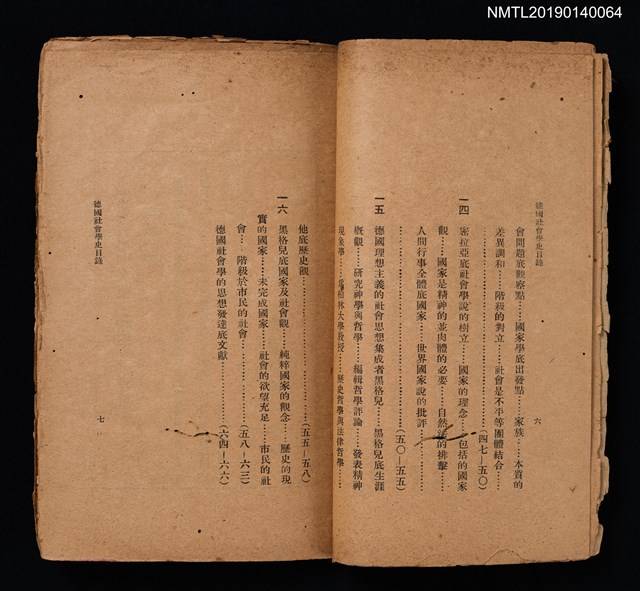 NMTL20190140064
德國社會學史目錄
六
會問題底觀察點……國家學底出發點……家族……本質的
差異調和……階級的對立……社會是不平等團體結合……
……(四七—五〇)
一四 密拉亞底社會學說的樹立……國家的理念……包括的國家
觀……國家是精神的並肉體的必要……自然法的排擊……
人間行事全體底國家……世界國家說的批評……
……(五〇—五五)
一五 德國理想主義的社會思想集成者黑格兒……黑格兒底生涯
概觀……研究神學與哲學……編輯哲學評論……發表精神
現象學……爲柏林大學教授……歷史哲學與法律哲學……
他底歷史觀……(五五—五八)
一六 黑格兒底國家及社會觀……純粹國家的觀念……歷史的現
實的國家……未完成國家……社會的欲望充足……市民的社
會……階級於市民的社會……(五八—六三)
德國社會學的思想發達底文獻……(六四—六六)
德國社會學史目錄
七